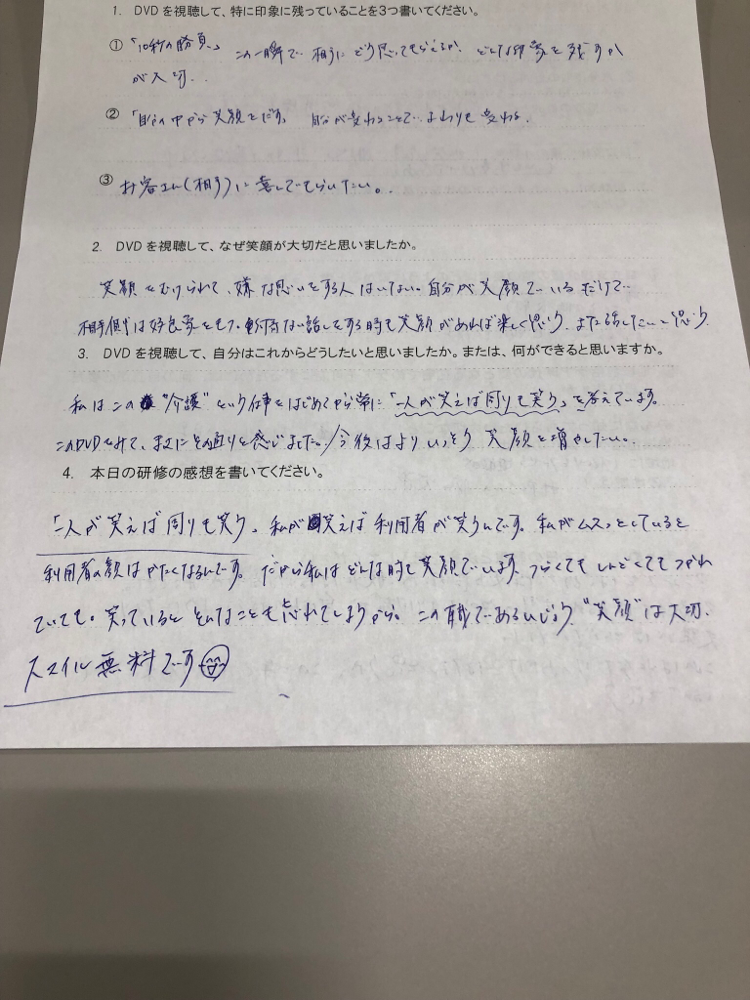 1. DVDを視聴して、特に印象に残っていることを3つ書いてください。
① 「10秒の勝負」 この一瞬で相手にどう思ってもらえるか、どんな印象を残すか
が大切。
② 「自分の中から笑顔をだす。 自分が変わることで、まわりも変わる。
③ お客さん(相手)に喜んでもらいたい。
2. DVDを視聴して、なぜ笑顔が大切だと思いましたか。
笑顔をむけられて、嫌な思いをする人はいない。自分が笑顔でいるだけで
相手側は好印象をもつ。 ない話をする時も笑顔があれば楽しく思う。また話したいと思う。
3. DVDを視聴して、自分はこれからどうしたいと思いましたか。または、何ができると思いますか。
私はこの"介護"という仕事をはじめてから常に「一人が笑えば周りも笑う」を考えています。
このDVDをみて、まさにその通りと感じました。今後はよりいっそう笑顔を増やしたい。
4. 本日の研修の感想を書いてください。
「一人が笑えば周りも笑う、私が笑えば利用者が笑うんです。私がムスッとしていると
利用者の顔はかたくなるんです。だから私はどんな時も笑顔でいます。つらくてもしんどくてもつかれ
ていても。笑っているとそんなことも忘れてしまうから。この職であるいじょう"笑顔"は大切、
スマイル無料です